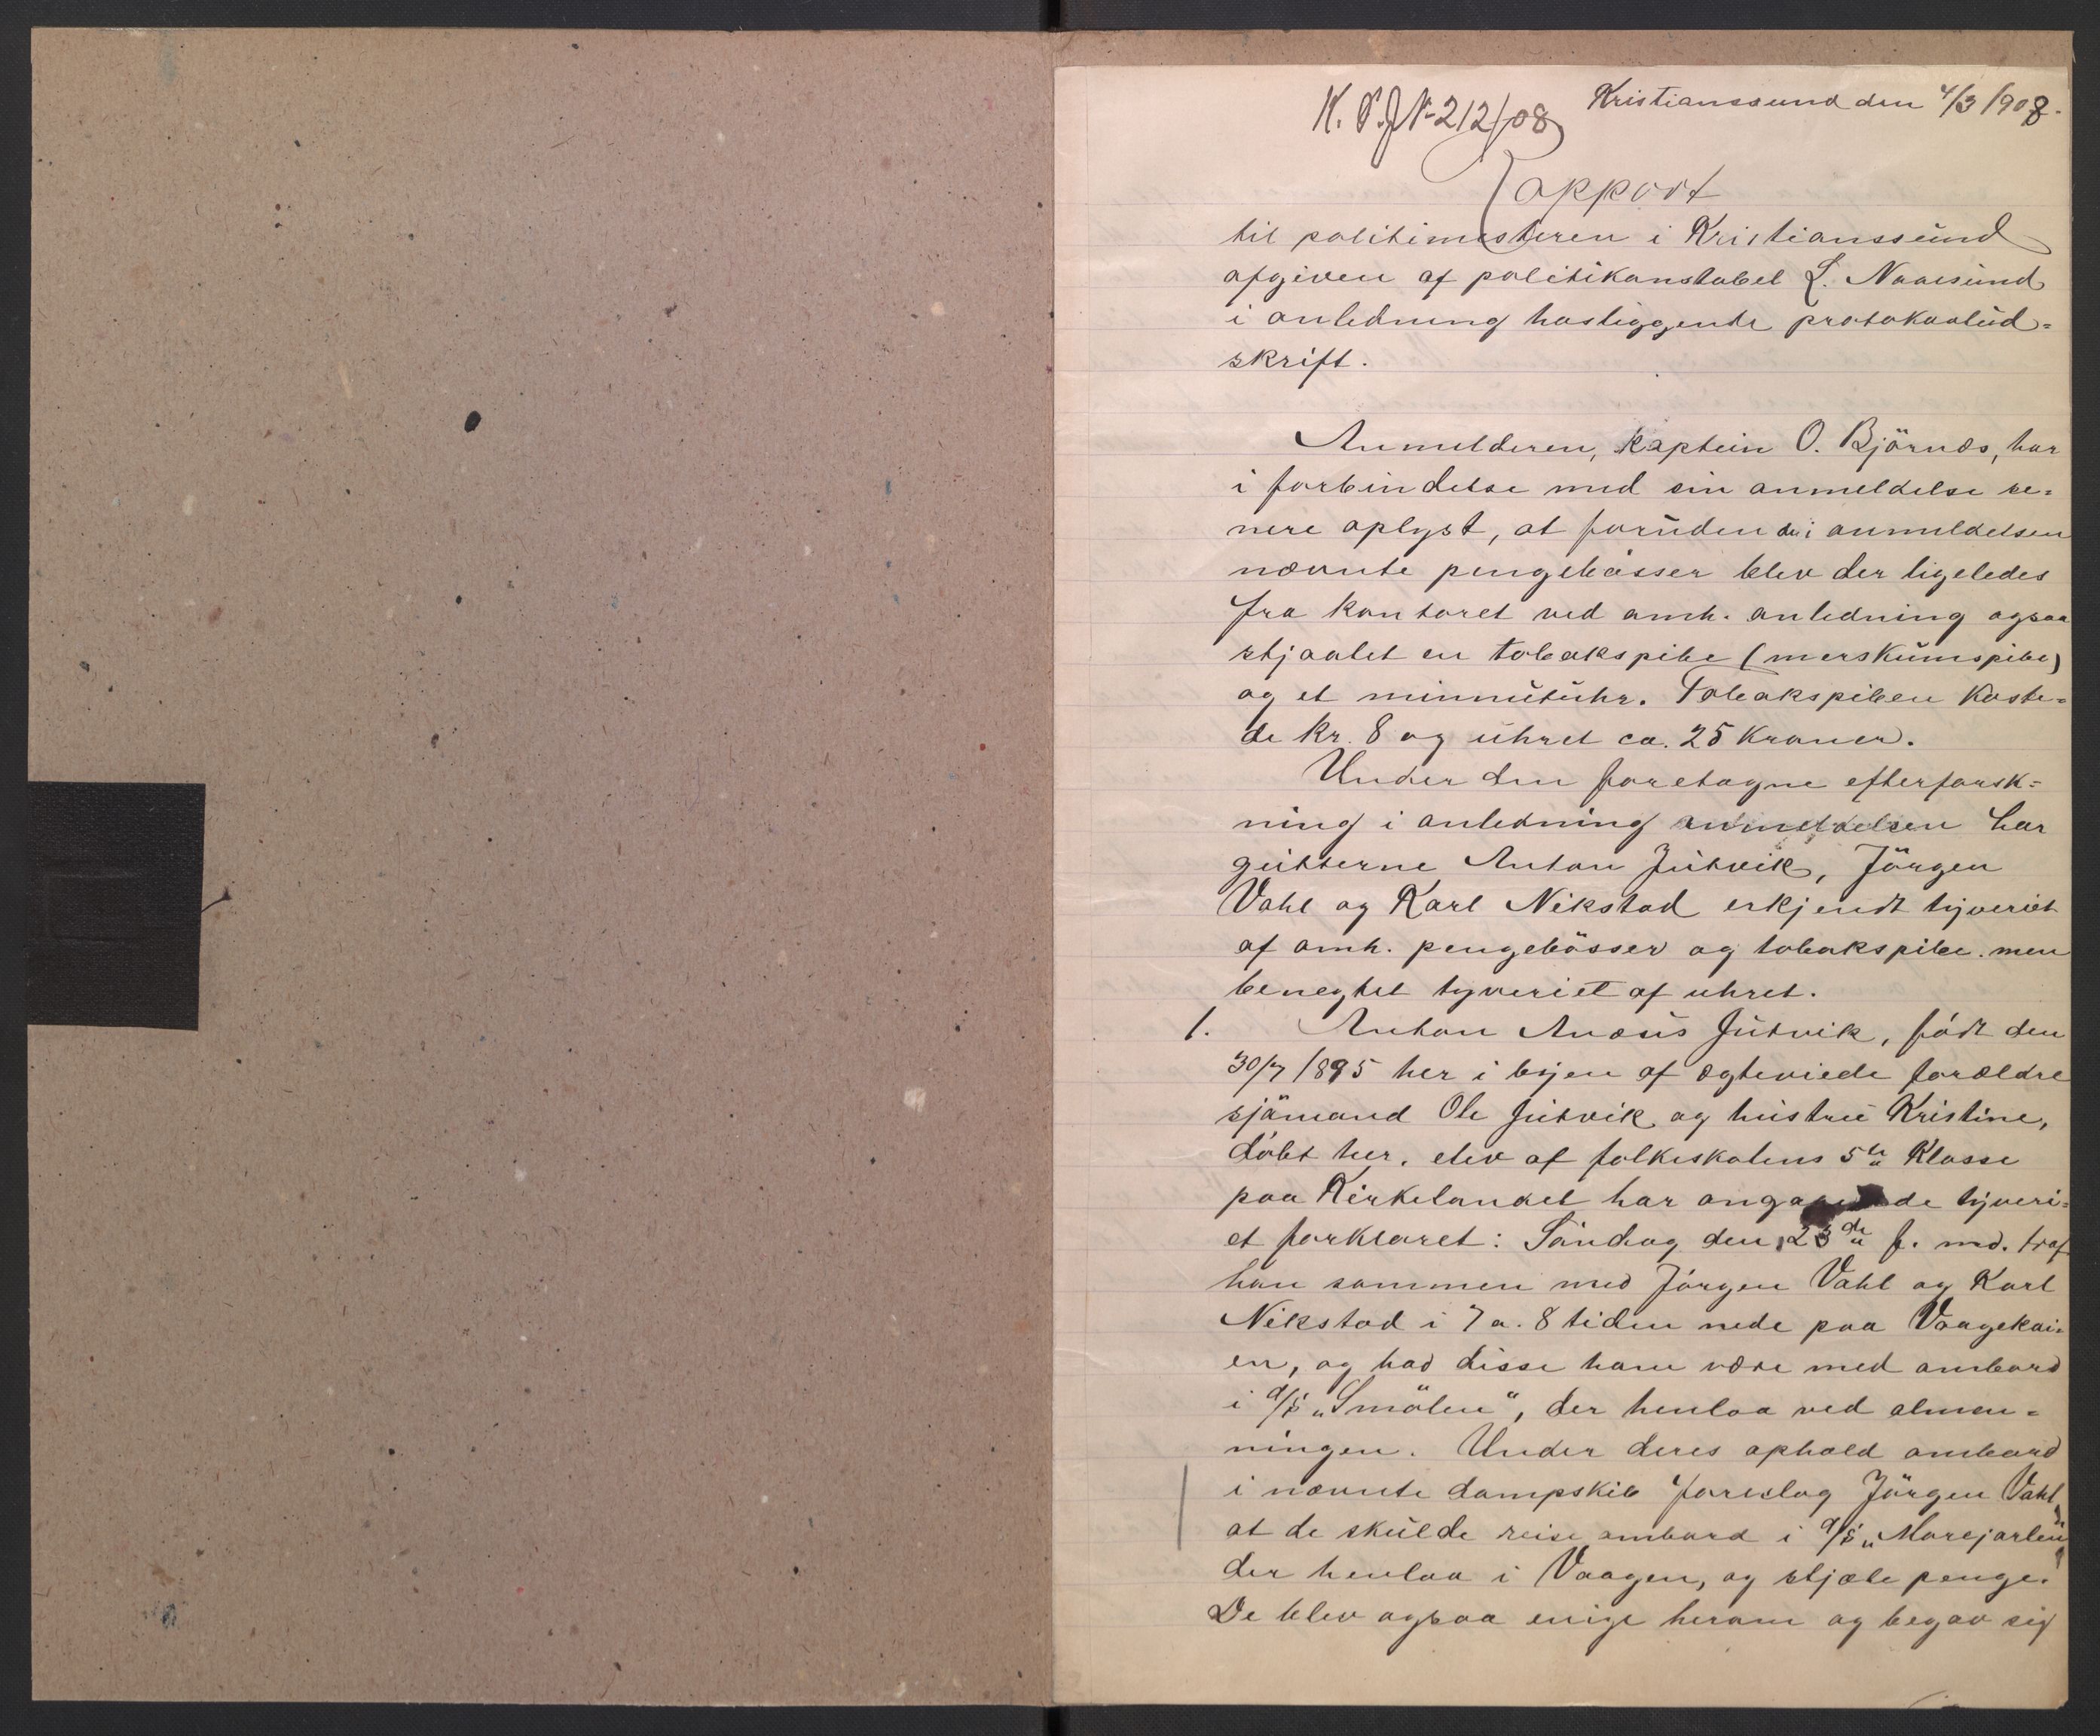 K. P. J. Nr 212/08
Kristianssund den 4/3 1908.
Rapport
til politimesteren i Kristianssund
afgiven af politikonstabel L. Naaesund
i anledning hosliggende protokolud=
skrift.
Anmelderen, kaptein O. Björnæs, har
i forbindelse med sin anmeldelse se=
nere oplyst, at foruden de i anmeldelsen
nævnte pengebösser blev der ligeledes
fra kontoret ved amh. anledning ogsaa
stjaalet en tobakspibe (merskumspibe)
og et minnutuhr. Tobakspiben koste=
de kr. 8 og uhret ca. 25 kroner.
Under den foretagne efterforsk=
ning i anledning anmeldelsen har
gutterne Anton Jutvik, Jörgen
Vahl og Karl Nikstad erkjendt tyveriet
af amh. pengebösser og tobakspibe. men
benegtet tyveriet af uhret.
1. Anton Anæus Jutvik, födt den
30/7 1895 her i byen af ægteviede forældre
sjömand Ole Jutvik og hustru Kristine,
döbt her, elev af folkeskolens 5te klasse
paa Kirkelandet har angaaende tyveri=
et forklaret: Söndag den 23de f. md. traf
han sammen med Jörgen Vahl og Karl
Nikstad i 7 a. 8 tiden nede paa Vaagekai=
en, og bad disse ham være med ombord
i d/s „Smölen“, der henlaa ved almen=
ningen. Under deres ophold ombord
i nævnte dampskib foreslog Jörgen Vahl,
at de skulde reise ombord i d/s „Morejarlen“
der henlaa i Vaagen, og stjæle penge.
De blev ogsaa enige herom og begav sig